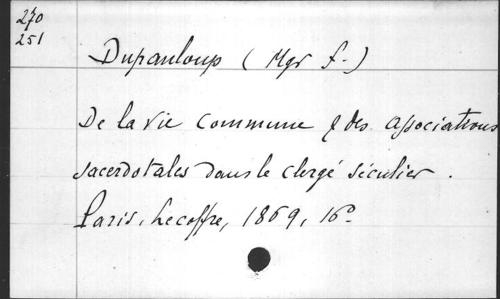 270
251
Dupanloup (Mgr f.)
De la vie commune & des associations
sacerdotales dans le clergé séculier.
Paris, Lecoffre, 1869, 16º